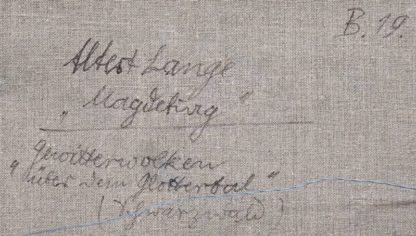 B. 19.
Albert Lange
"Magdeburg"
Gewitterwolken
"über dem Glottertal"
(Schwarzwald)